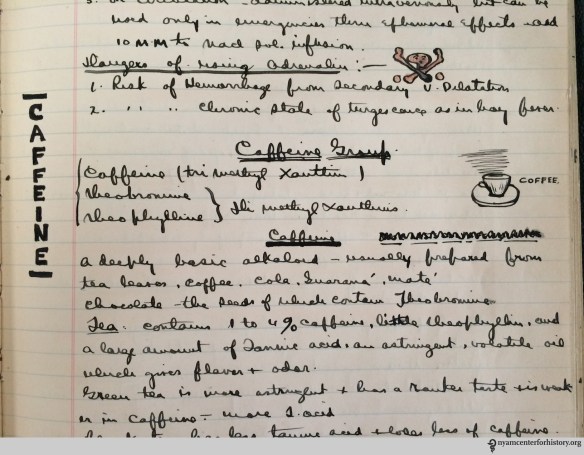 3. In Circulation - administered intravenously but can be
used only in emergencies three ephemeral effects - add
10 MM to nacl sol. infusion.
Dangers of using Adrenalin :-
1. Risk of Hemorrhage from Secondary V. Dilatation
2. " " " chronic state of turgescence as in hay fever.
CAFFEINE
Caffeine Group.
Caffeine (tri methyl Xanthin)
theobromine
theophylline } Di methyl Xanthins.
COFFEE.
Caffeine
a deeply basic alkaloid - usually prepared from
tea leaves, coffee, cola, Guaraná, maté
chocolate - the seeds of which contain Theobromine
Tea. contains 1 to 4% caffeine, little theophyllin, and
a large amount of Tannic acid, an astringent, volatile oil
which gives flavor + odor.
Green tea is more astringent + has a ranker taste + is weak
er in caffeine - more T. acid
less tannic acid + less of caffeine.
nyamcenterforhistory.org